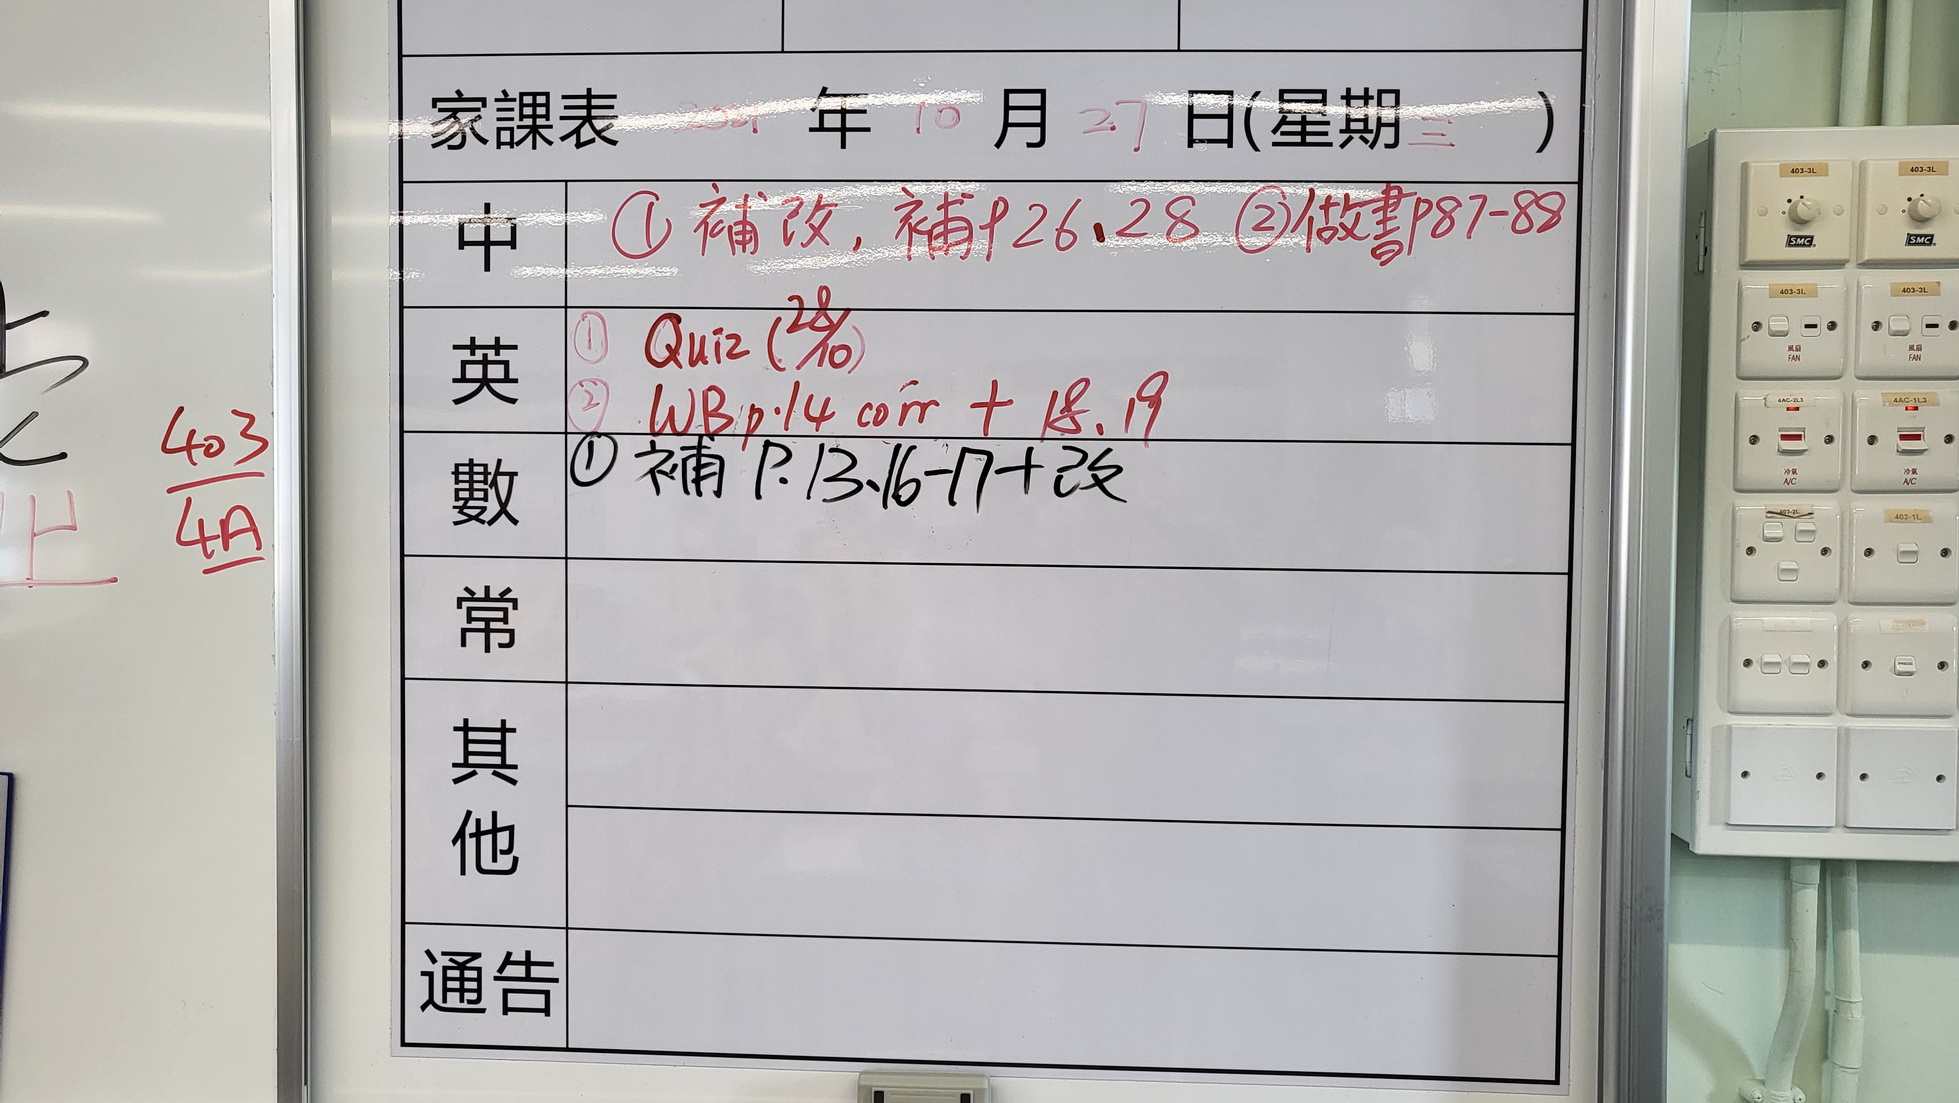 家課表 2021 年 10 月 27 日(星期三)
中 ① 補改, 補p26、28 ②做書p87-88
英 ① Quiz (28/10)
② WB p.14 corr + 18、19
數 ① 補 P.13、16-17+改
常
其他
通告
上
403
4A
403-3L 403-3L
SMC SMC
403-3L 403-3L
風扇 風扇
FAN FAN
4AC-2L3 4AC-1L3
冷氣 冷氣
A/C A/C
403-2L 403-1L
PRESS